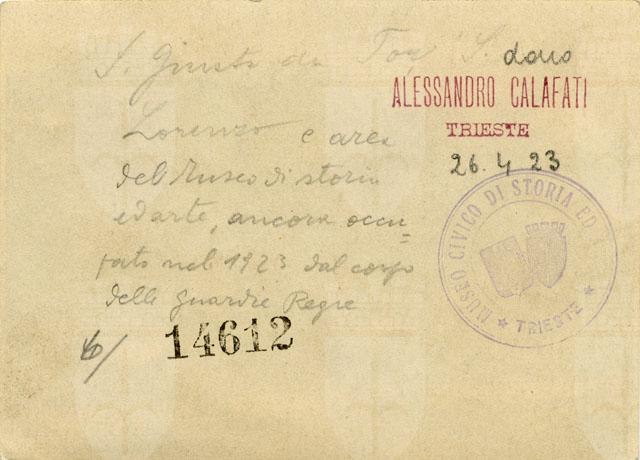 S. Giusto da Tor S.
Lorenzo e area
del Museo di storia
ed arte, ancora occu=
pato nel 1923 dal corpo
delle Guardie Regie
dono
ALESSANDRO CALAFATI
TRIESTE
26. 4 23
MUSEO CIVICO DI STORIA ED
★ TRIESTE ★
14612